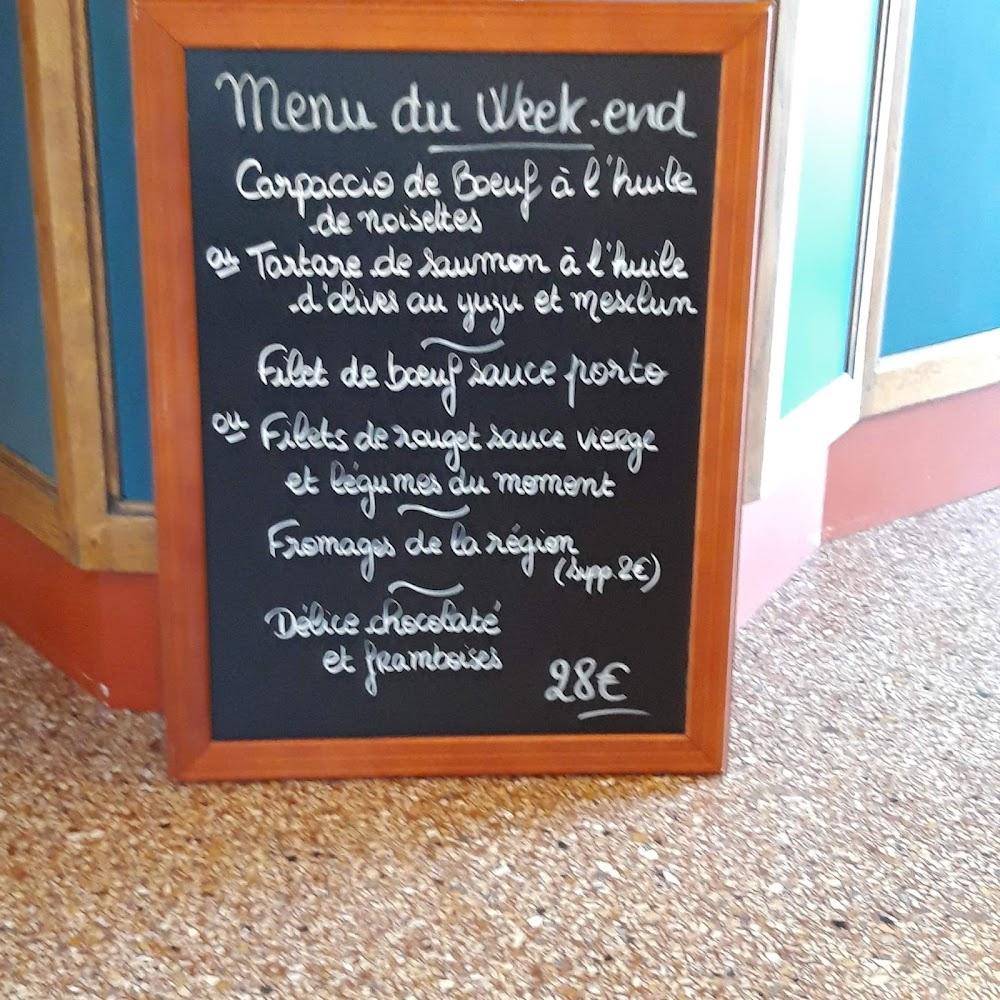 Menu du Week-end
Carpaccio de Boeuf à l'huile
de noisettes
ou Tartare de saumon à l'huile
d'olives au yuzu et mesclun
Filet de bœuf sauce porto
ou Filets de rouget sauce vierge
et légumes du moment
Fromages de la région
(supp. 2€)
Délice chocolaté
et framboises
28€